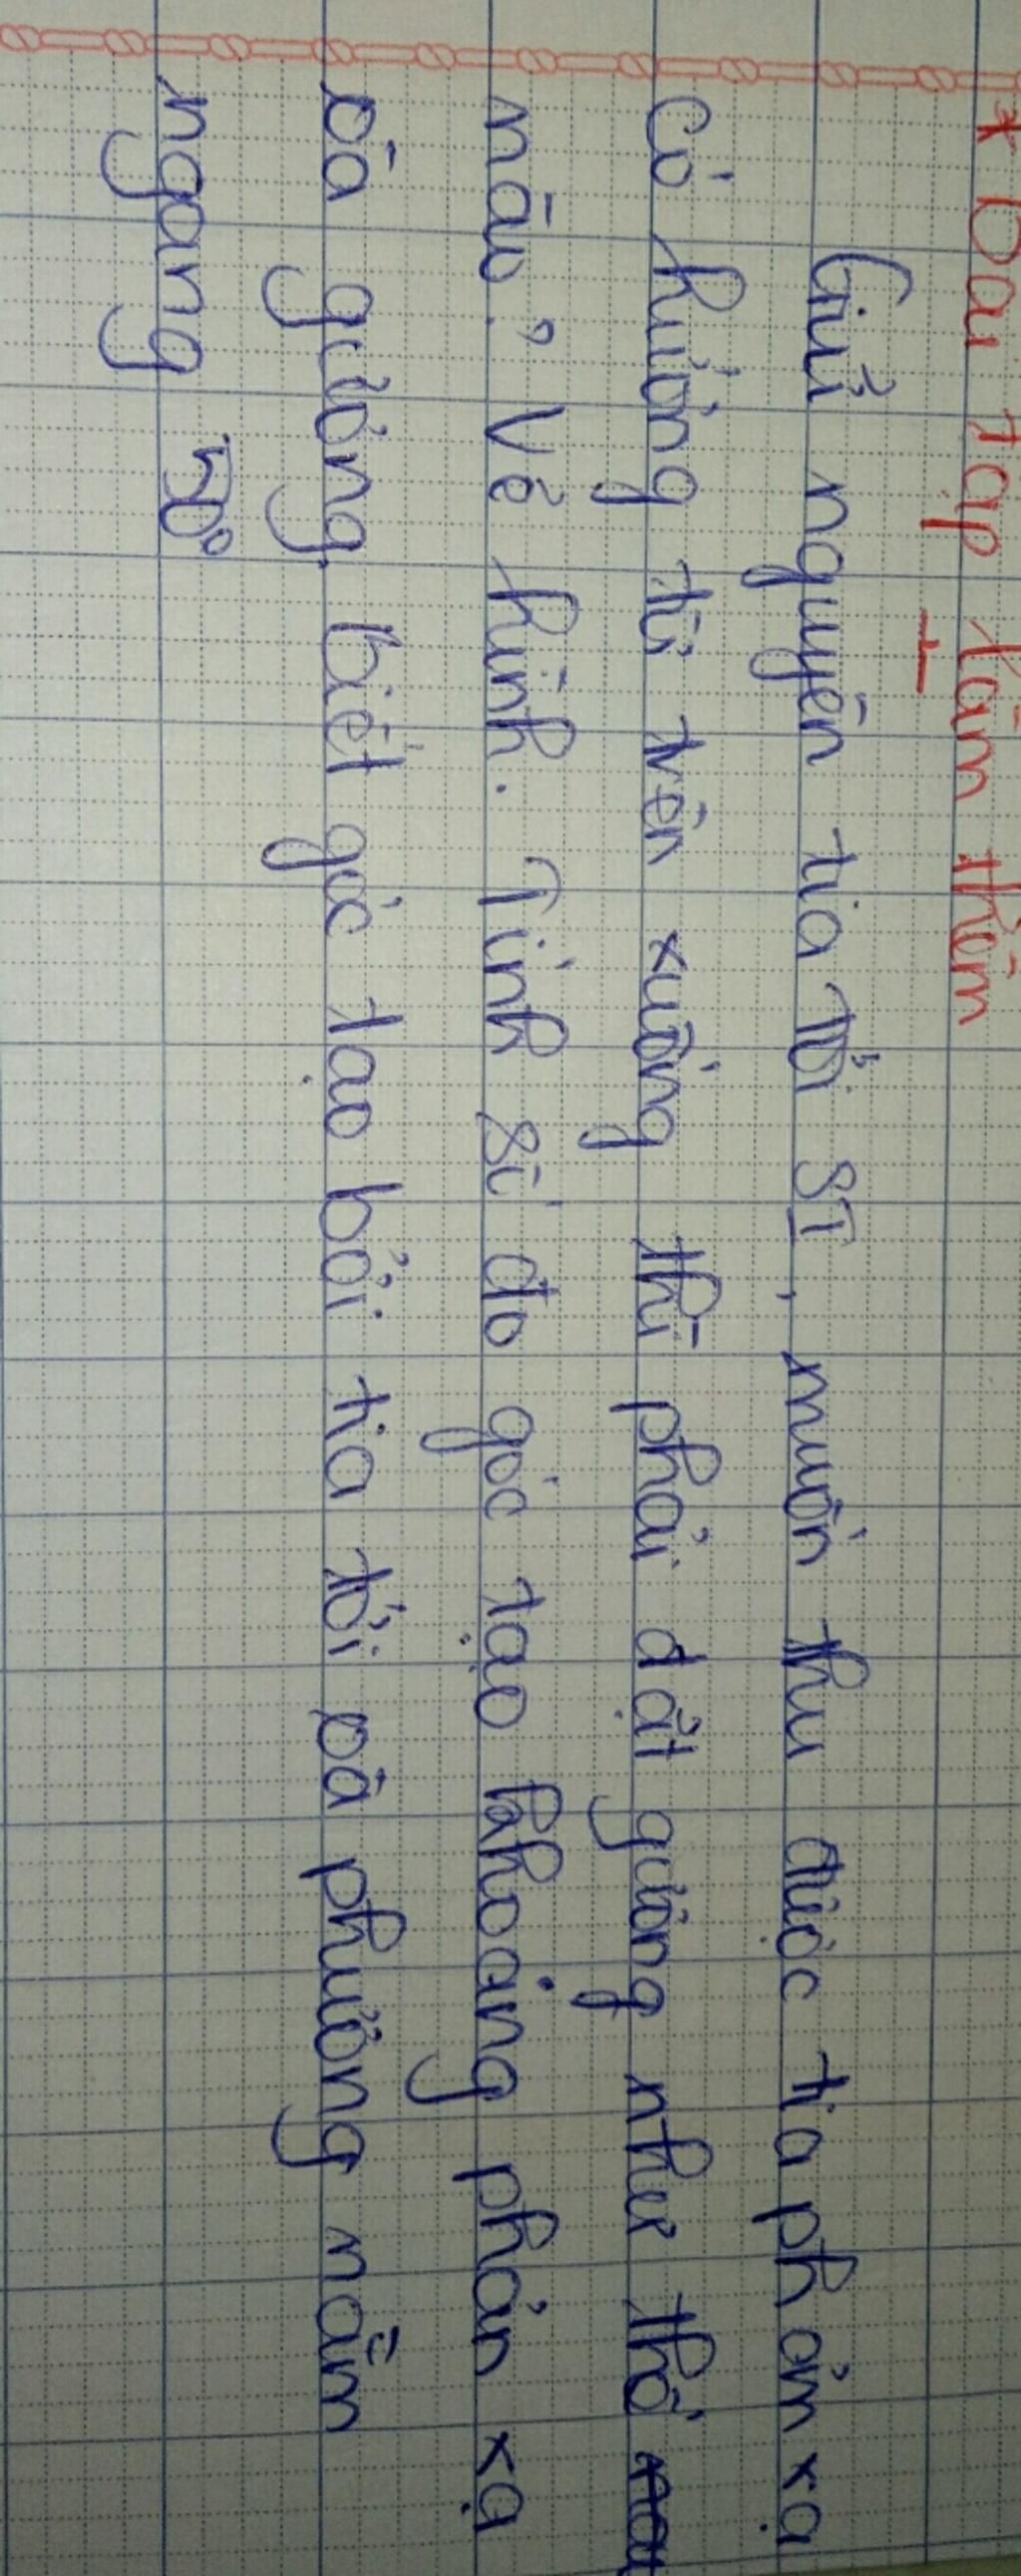 * Bài tập làm thêm
Giữ nguyên tia tới SI, muốn thu được tia phản xạ
có hướng từ trên xuống thì phải đặt gương như thế
nào? Vẽ hình. Tính số đo góc tạo khoảng phản xạ
và gương, biết góc tạo bởi tia tới và phương nằm
ngang 50°